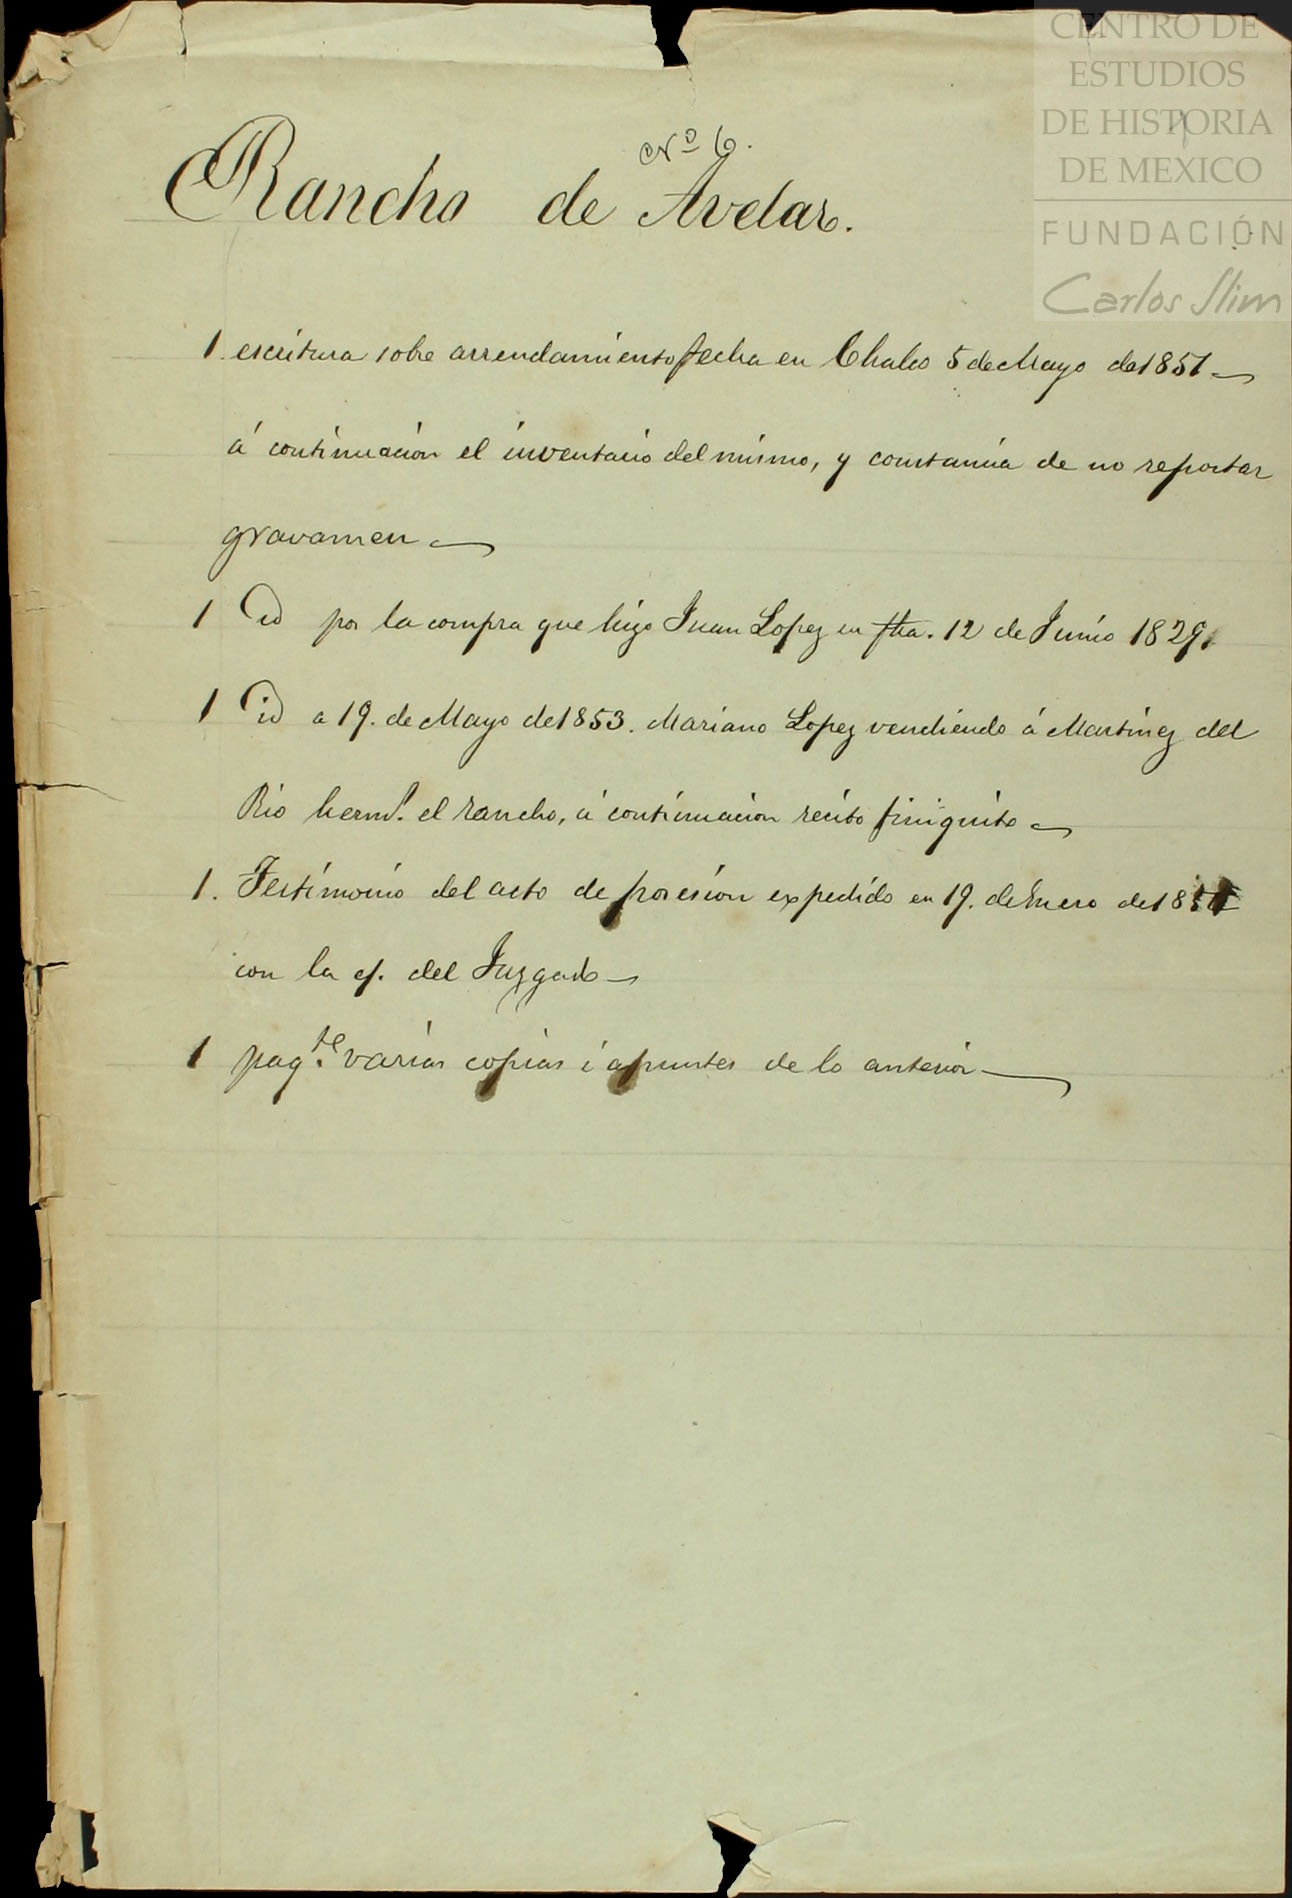 CENTRO DE
ESTUDIOS
DE HISTORIA
DE MEXICO
FUNDACIÓN
Carlos Slim
Nº 6.
Rancho de Avelar.
1 escritura sobre arrendamiento fecha en Chalco 5 de Mayo de 1851
á continuación el inventario del mismo, y constancia de no reportar
gravamen
1 id por la compra que hizo Juan Lopez en fha. 12 de Junio 1829.
1 id a 19. de Mayo de 1853. Mariano Lopez vendiendo á Martinez del
Rio hermˢ. el rancho, á continuacion recibo finiquito
1. Testimonio del acto de posesion expedido en 19. de Enero de 18
con la of. del Juzgado
1 paqᵗᵉ. varias copias i apuntes de lo anterior